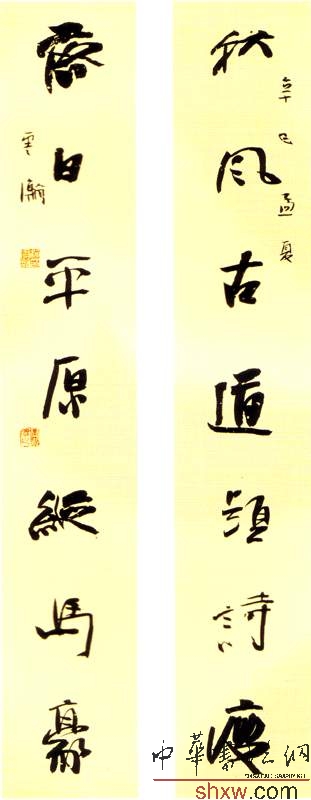 秋風古道題詩瘦
辛巳孟夏
落日平原縱馬豪
雲瀚
中華書法網
shxw.com